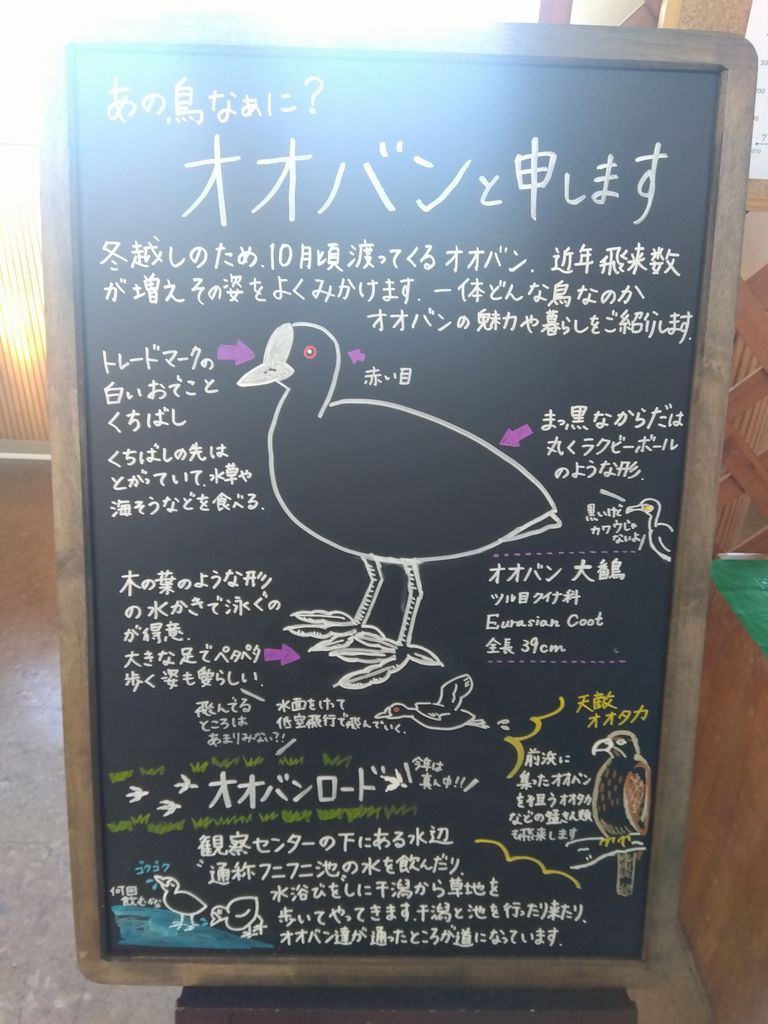 あの鳥なぁに?
オオバンと申します
冬越しのため、10月頃渡ってくるオオバン。近年飛来数
が増えその姿をよくみかけます。一体どんな鳥なのか
オオバンの魅力や暮らしをご紹介します。
トレードマークの
白いおでこと
くちばし
くちばしの先は
とがっていて、水草や
海そうなどを食べる。
赤い目
まっ黒なからだは
丸くラグビーボール
のような形。
黒いけど
カワウじゃ
ないよ
オオバン 大鷭
ツル目クイナ科
Eurasian Coot
全長 39cm
木の葉のような形
の水かきで泳ぐの
が得意。
大きな足でペタペタ
歩く姿も愛らしい。
飛んでる
ところは
あまりみない?!
水面をけって
低空飛行で飛んでいく。
天敵
オオタカ
前浜に
集ったオオバン
を狙うオオタカ
などの猛きん類
も飛来します
オオバンロード
今年は
真ん中!!
観察センターの下にある水辺
通称フニフニ池の水を飲んだり、
水浴びをしに干潟から草地を
歩いてやってきます。干潟と池を行ったり来たり、
オオバン達が通ったところが道になっています。
ゴクゴク
何回
飲むかな